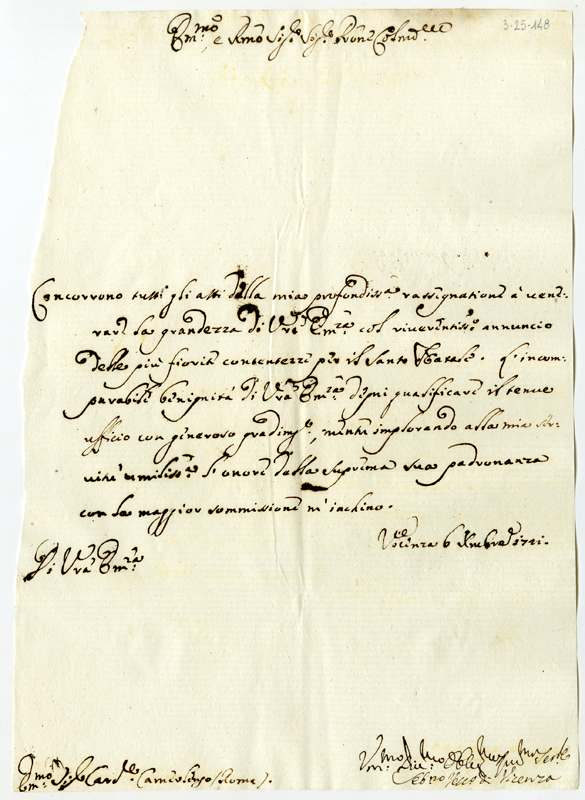 3-25-148
Em.mo, e Rmo Sig.r Sig.r Prone Col.mo
Concorrono tutti gli atti della mia profondiss.a rassignatione à vene-
rare la grandezza di Vra Em.za col riverentiss.o annuncio
delle più fiorite contentezze per il Santo Natale. L'incom-
parabile benignità di Vra Em.za degni qualificare il tenue
ufficio con generoso gradim.to, mentre implorando alla mia ser-
vitù umiliss.a l'onore della suprema sua padronanza
con la maggior sommissione m'inchino.
Vicenza 6 Xmbre 1721.
Di Vra Em.za
Em.mo Sig.r Card.le (Roma).
Um.mo Seru.e
Vesc.o di Vicenza